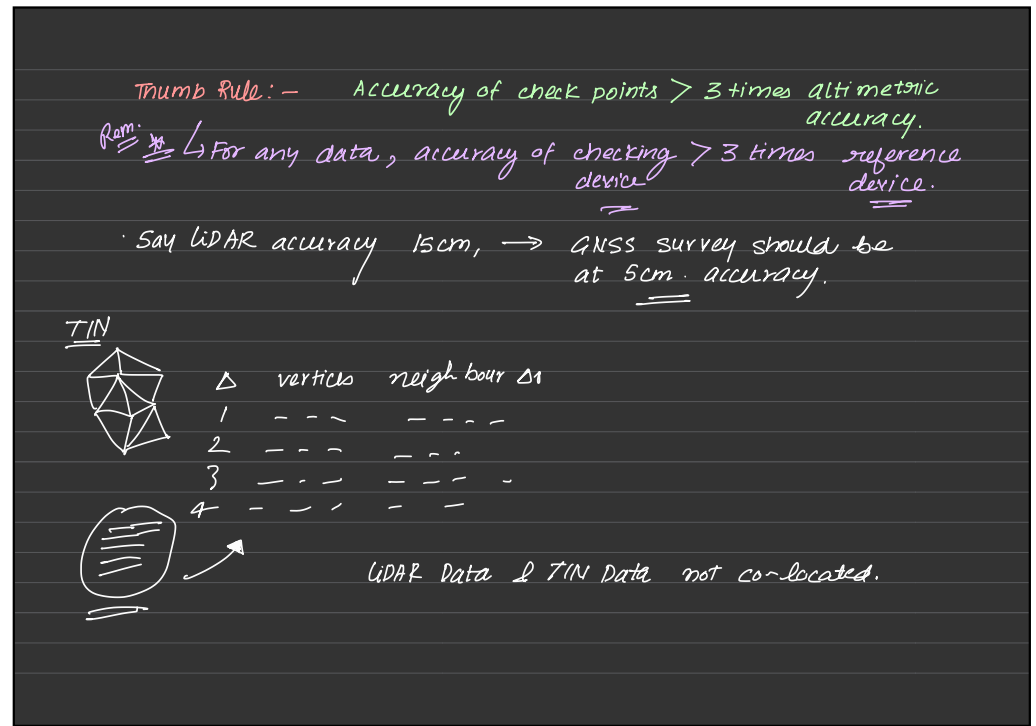 Thumb Rule:- Accuracy of check points > 3 times altimetric
accuracy.
Rem. ** ↳ For any data, accuracy of checking > 3 times reference
device device.
· Say LiDAR accuracy 15cm, → GNSS survey should be
at 5cm. accuracy.
TIN
Δ vertices neighbour Δs
1 - - - - - - -
2 - - - - - -
3 - - - - - - -
4 - - - - -
LiDAR Data & TIN Data not co-located.